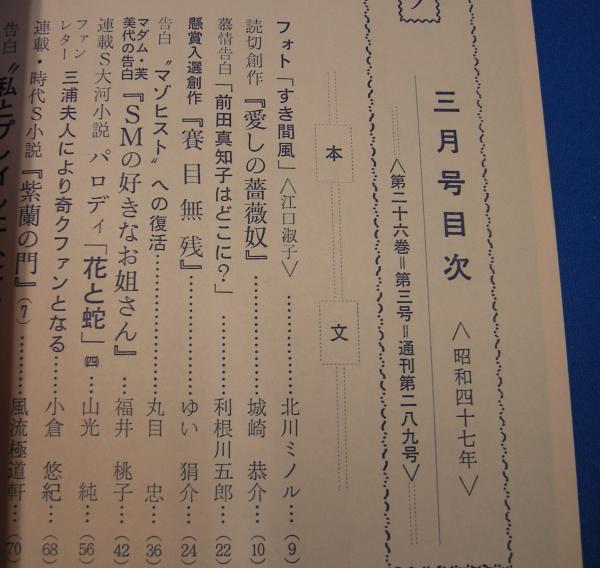 三月号目次
＜昭和四十七年＞
＜第二十六巻＝第三号＝通刊第二八九号＞
本文
フォト「すき間風」＜江口淑子＞…………北川ミノル…（9）
読切創作『愛しの薔薇奴』…………城崎恭介…（10）
慕情告白「前田真知子はどこに？」…………利根川五郎…（22）
懸賞入選創作『賽目無残』…………ゆい狷介…（24）
告白〝マゾヒスト〟への復活…………丸目忠…（36）
マダム・芙美代の告白『SMの好きなお姐さん』…福井桃子…（42）
連載S大河小説 パロディ「花と蛇」㈣…山光純…（56）
ファンレター 三浦夫人により奇クファンとなる…小倉悠紀…（68）
連載・時代S小説『紫蘭の門』（7）…………風流極道軒…（70）
告白〝私とプレイ